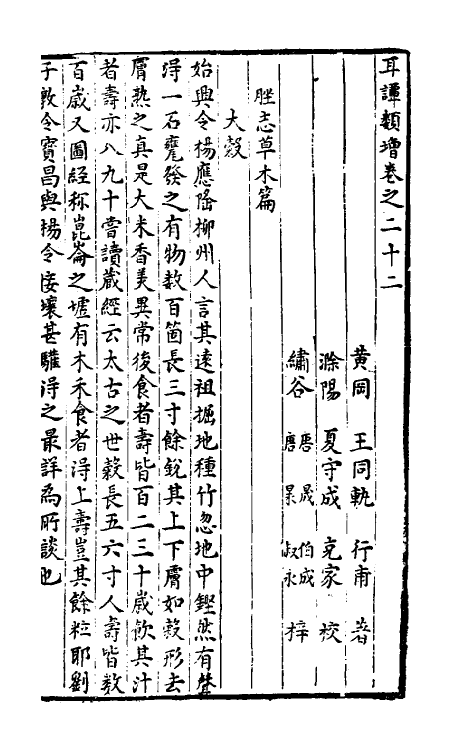 耳譚類增卷之二十二
黃岡 王同軌 行甫 著
滁陽 夏守成 克家 校
繡谷 唐晟 伯成
唐杲 叔永 梓
胜志草木篇
大穀
始興令楊應隆柳州人言其遠祖掘地種竹忽地中鏗然有聲
淂一石甕發之有物数百箇長三寸餘銳其上下膚如穀形去
膚熟之真是大米香美異常後食者壽皆百二三十歲飲其汁
者壽亦八九十嘗讀蔵經云太古之世穀長五六寸人壽皆数
百歲又圖經称崑崙之墟有木禾食者淂上壽豈其餘粒耶劉
子敦令寶昌與楊令接壤甚驩淂之最詳為所談也